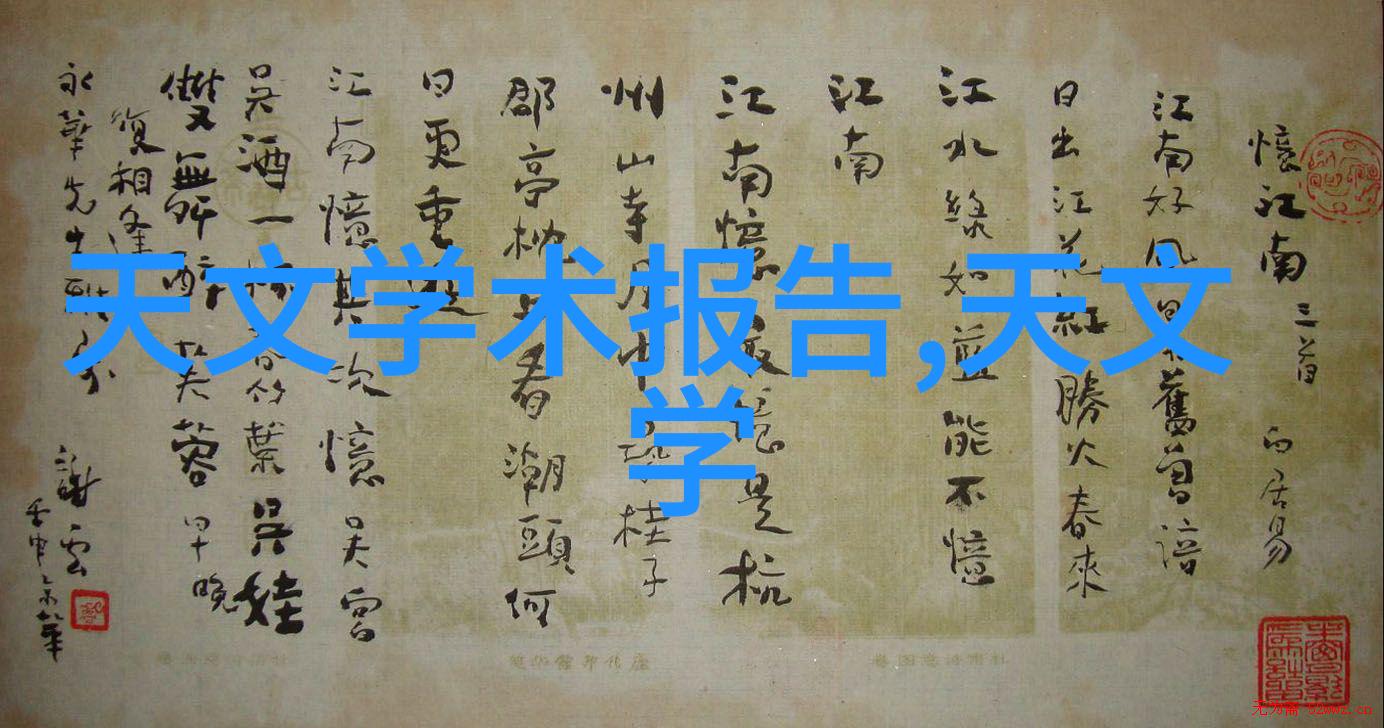 憶江南 三首 白居易
江南好風景舊曾諳
日出江花紅勝火春來
江水綠如藍能不憶
江南
江南憶最憶是杭
州山寺月中尋桂子
郡亭枕上看潮頭何
日更重遊
江南憶其次憶吳宮
吳酒一杯春竹葉吳娃
雙舞醉芙蓉早晚
復相逢
永華先生
謝雲
天文学术报告,天文
学